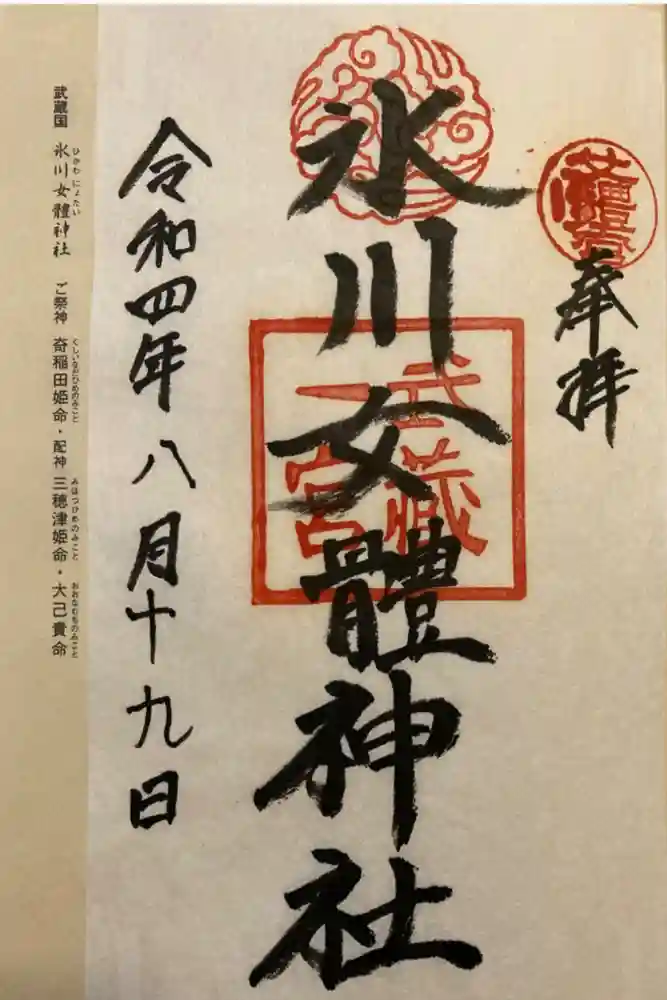 奉拝
氷川女體神社
武蔵
一宮
令和四年八月十九日
武蔵国 氷川女體神社 ご祭神 奇稲田姫命・配神 三穂津姫命・大己貴命
ひかわ にょたい
くしいなだひめのみこと
みほつひめのみこと
おおなむちのみこと